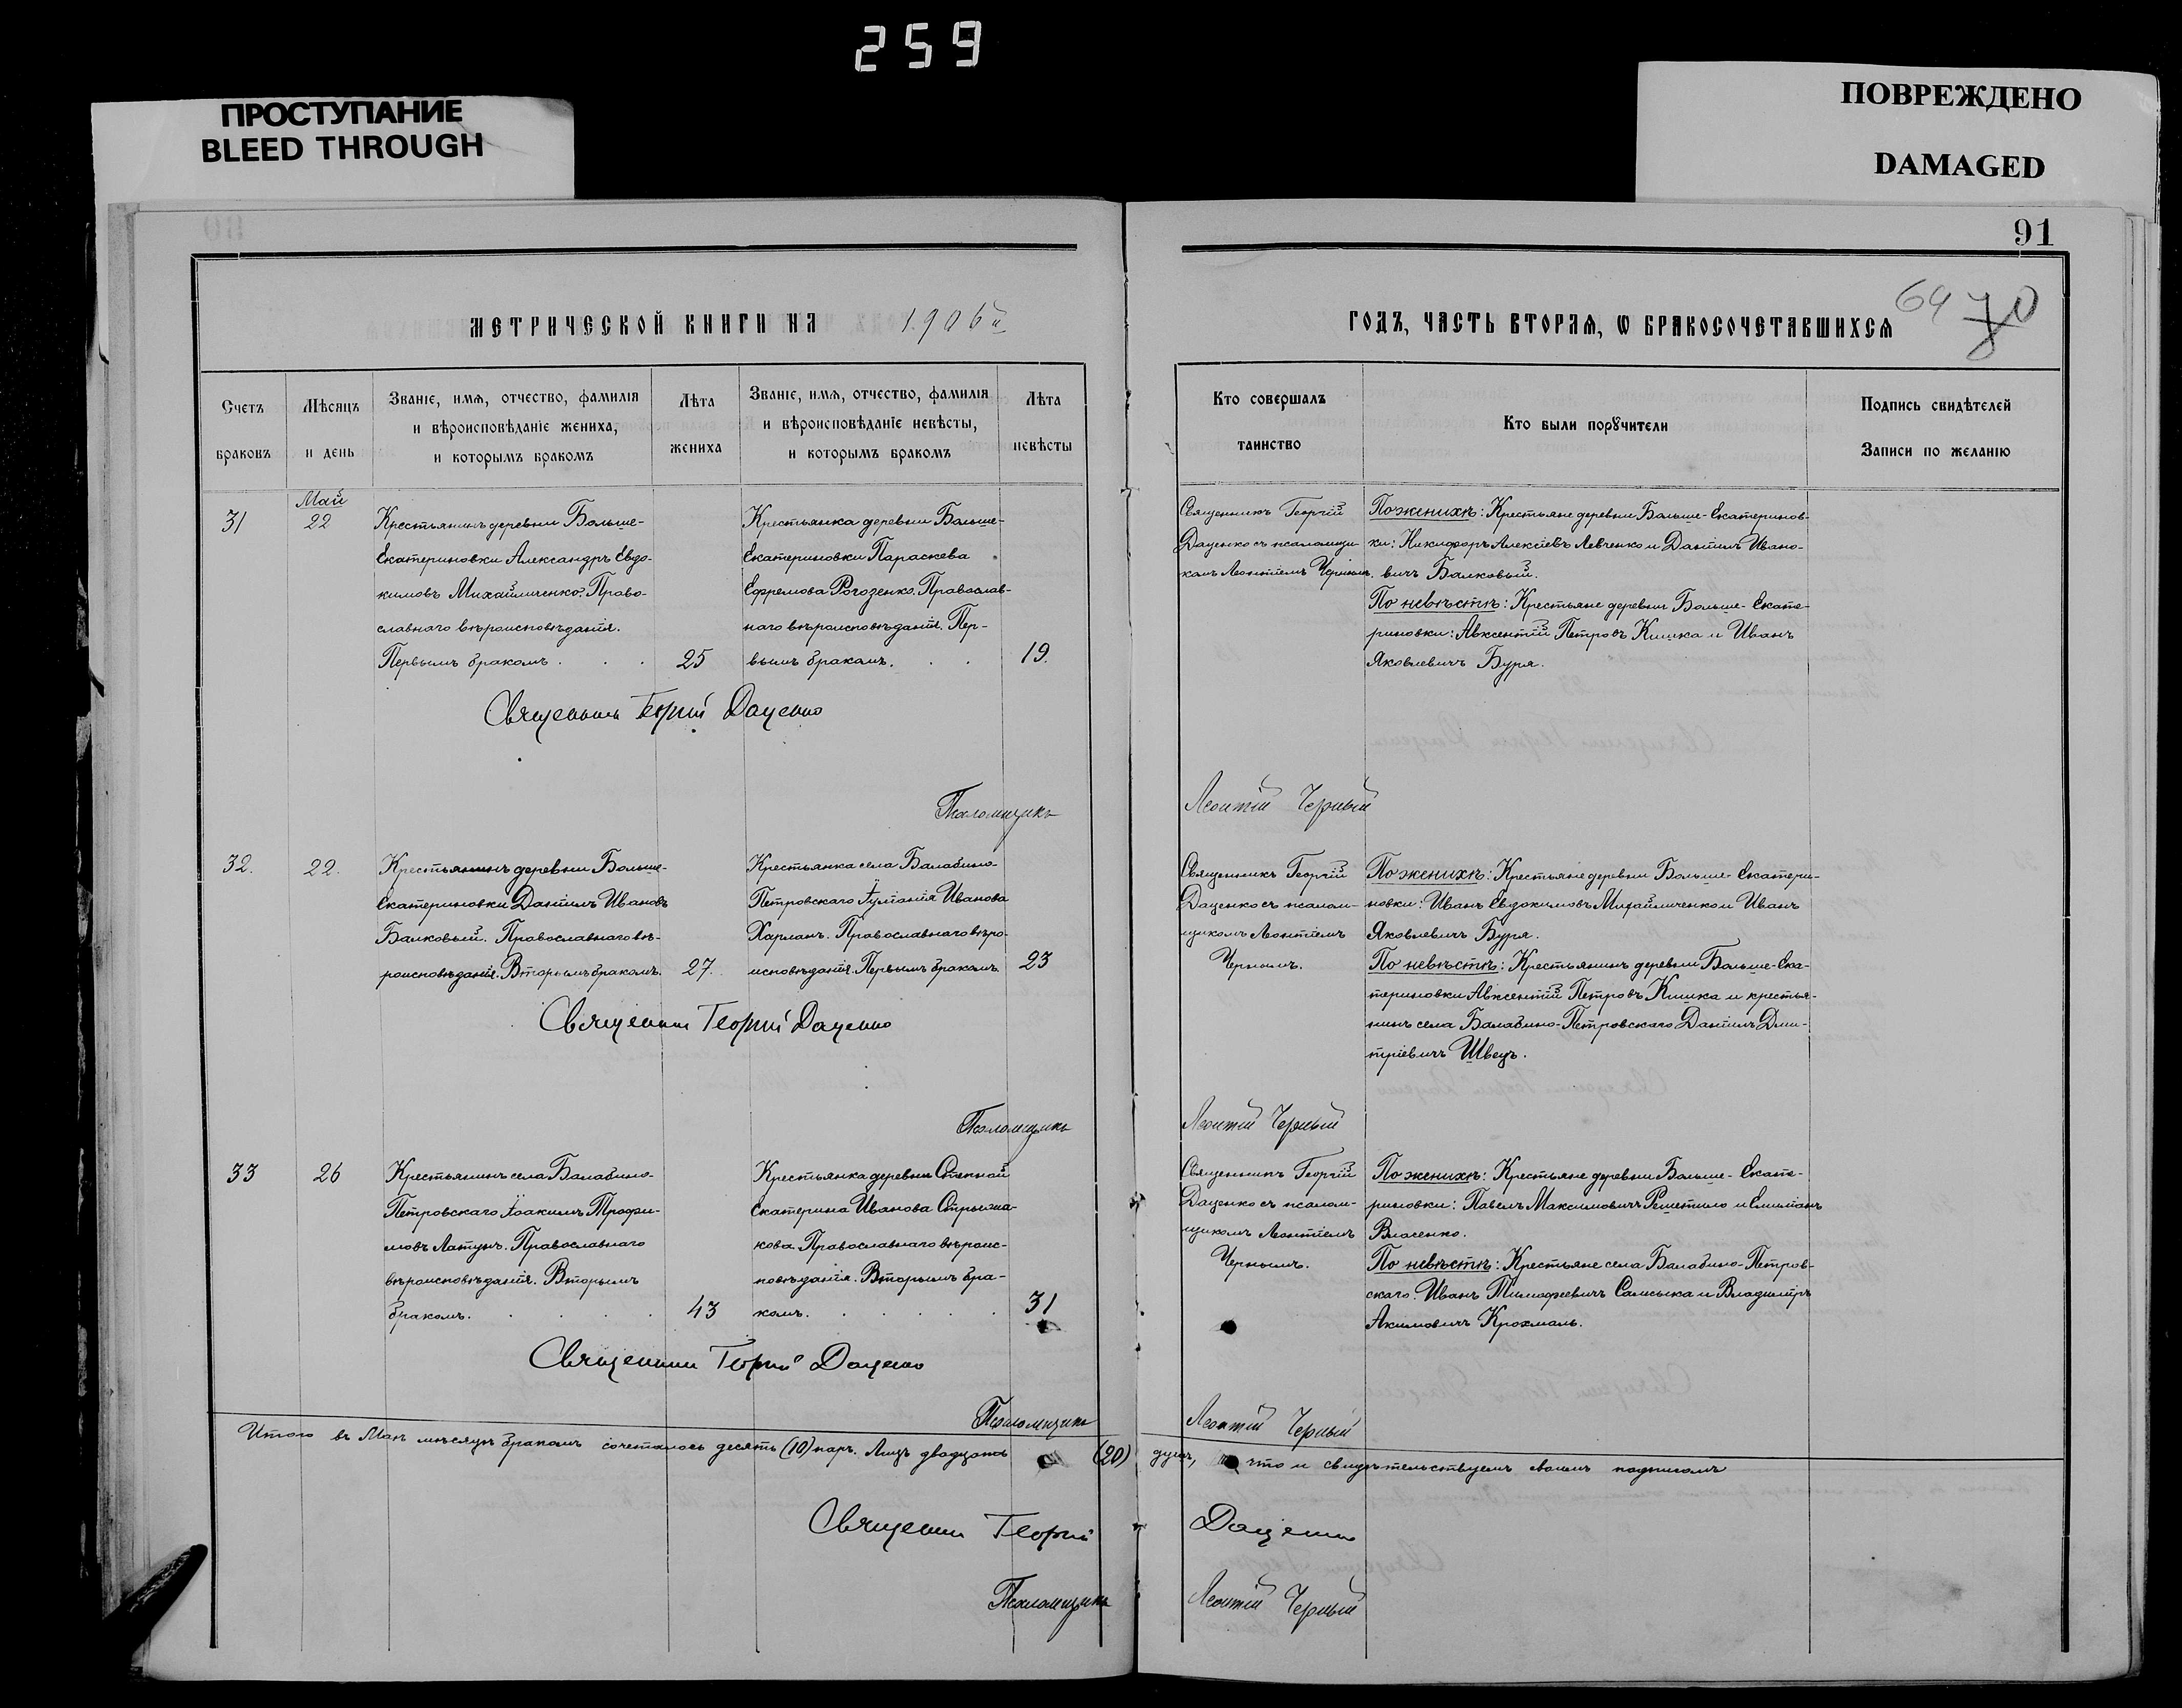 259
ПРОСТУПАНИЕ
BLEED THROUGH
ПОВРЕЖДЕНО
DAMAGED
91
69 70
МЕТРИЧЕСКОЙ КНИГИ НА 1906й
ГОДЪ, ЧАСТЬ ВТОРАЯ, Ѡ БРАКОСОЧЕТАВШИХСЯ
Счетъ
браковъ
Мѣсяцъ
и день
Званіе, имя, отчество, фамилія
и вѣроисповѣданіе жениха,
и которымъ бракомъ
Лѣта
жениха
Званіе, имя, отчество, фамилія
и вѣроисповѣданіе невѣсты,
и которымъ бракомъ
Лѣта
невѣсты
Кто совершалъ
таинство
Кто были порꙋчители
Подпись свидѣтелей
Записи по желанію
31
Май
22
Крестьянинъ деревни Больше-
Екатериновки Александръ Евдо-
кимовъ Михайличенко. Право-
славнаго вѣроисповѣданія.
Первымъ бракомъ . . .
25
Крестьянка деревни Больше-
Екатериновки Параскева
Ефремова Рогозенко. Православ-
наго вѣроисповѣданія. Пер-
вымъ бракомъ. . .
19.
Священникъ Георгій
Даценко съ псаломщи-
комъ Леонтіемъ Чернымъ.
По женихѣ: Крестьяне деревни Больше-Екатеринов-
ки: Никифоръ Алексѣевъ Левченко и Даніилъ Ивано-
вичъ Балковый.
По невѣстѣ: Крестьяне деревни Больше-Екате-
риновки: Авксентій Петровъ Кишка и Иванъ
Яковлевичъ Буря.
Священникъ Георгій Даценко
Псаломщикъ Леонтій Черный
32.
22.
Крестьянинъ деревни Больше-
Екатериновки Даніилъ Ивановъ
Балковый. Православнаго вѣ-
роисповѣданія. Вторымъ бракомъ.
27.
Крестьянка села Балабино-
Петровскаго Іуліанія Иванова
Харланъ. Православнаго вѣро-
исповѣданія. Первымъ бракомъ.
23
Священникъ Георгій
Даценко съ псалом-
щикомъ Леонтіемъ
Чернымъ.
По женихѣ: Крестьяне деревни Больше-Екатери-
новки: Иванъ Евдокимовъ Михайличенко и Иванъ
Яковлевичъ Буря.
По невѣстѣ: Крестьянинъ деревни Больше-Ека-
териновки Авксентій Петровъ Кишка и крестья-
нинъ села Балабино-Петровскаго Даніилъ Дми-
тріевичъ Швецъ.
Священникъ Георгій Даценко
Псаломщикъ Леонтій Черный
33
26
Крестьянинъ села Балабино-
Петровскаго Іоакимъ Трофи-
мовъ Латунъ. Православнаго
вѣроисповѣданія. Вторымъ
бракомъ. . . . .
43
Крестьянка деревни Степной
Екатерина Иванова Стрыжа-
кова. Православнаго вѣроис-
повѣданія. Вторымъ бра-
комъ. . . . .
31
Священникъ Георгій
Даценко съ псалом-
щикомъ Леонтіемъ
Чернымъ.
По женихѣ: Крестьяне деревни Больше-Екате-
риновки: Павелъ Максимовичъ Решетило и Емиліанъ
Власенко.
По невѣстѣ: Крестьяне села Балабино-Петров-
скаго: Иванъ Тимофеевичъ Самсыка и Владиміръ
Акимовичъ Крохмаль.
Священникъ Георгій Даценко
Псаломщикъ Леонтій Черный
Итого въ Маѣ мѣсяцѣ бракомъ сочеталось десять (10) паръ. Лицъ двадцать (20) душъ, что и свидѣтельствуемъ своимъ подписомъ
Священникъ Георгій Даценко
Псаломщикъ Леонтій Черный